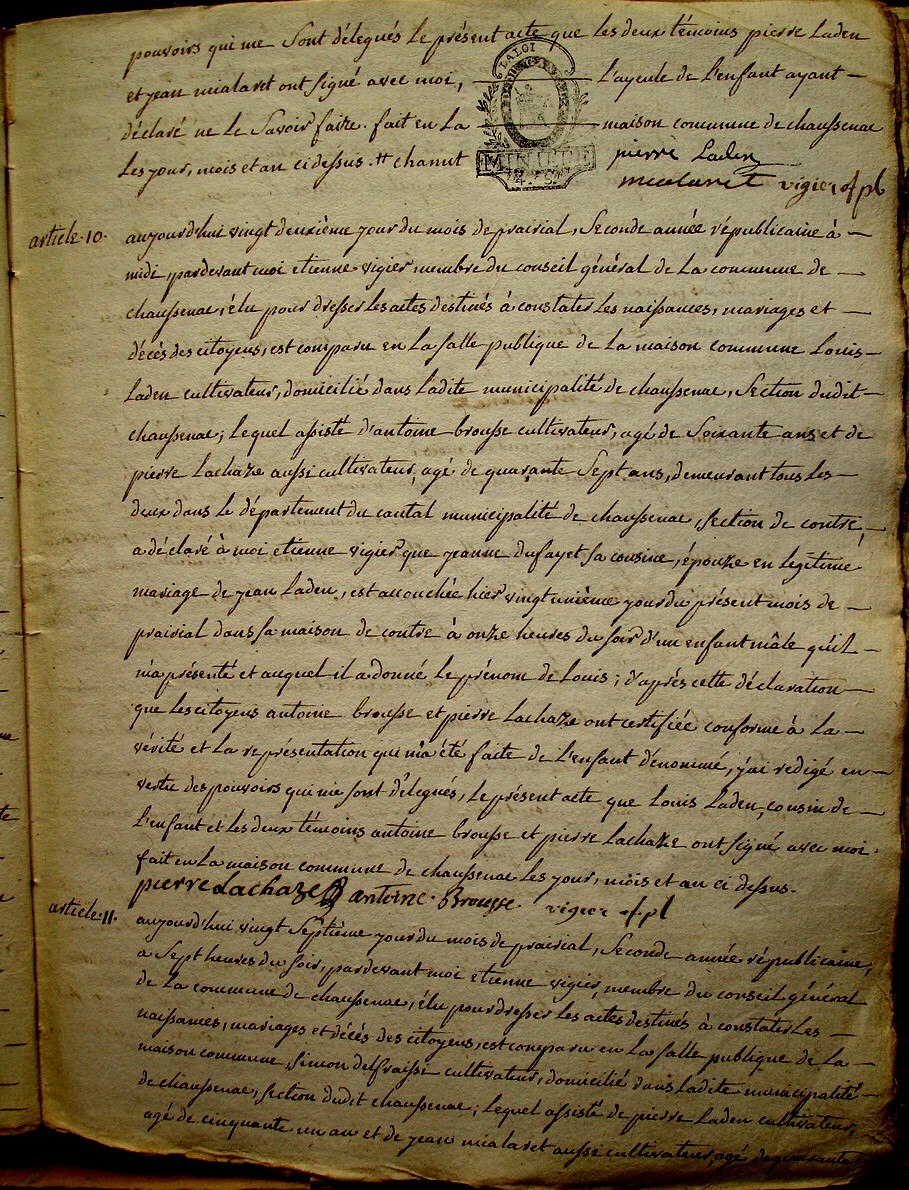 pouvoirs qui me Sont délegués Le présent acte que Les deux témoins pierre Laden
et jean mialaret ont signé avec moi, L'ayeule de L'enfant ayant
LA LOI
déclaré ne Le Savoir faire. fait en La maison commune de chaussenac
Les jour, mois et an ci dessus. chanut
MINUTE
pierre Laden
mialaret vigier of. pl
article 10. aujourd'hui vingt deuxième jour du mois de prairial, Seconde année républicaine à
midi, pardevant moi etienne vigier, membre du conseil général de La commune de
chaussenac, élu pour dresser Les actes destinés à constater Les naissances, mariages et
décès des citoyens, est comparu en La salle publique de La maison commune Louis
Laden cultivateur, domicilié dans Ladite municipalité de chaussenac, Section dudit
chaussenac; Lequel assisté d'antoine brousse cultivateur, agé de Soixante ans et de
pierre Lachaze aussi cultivateur, agé de quarante Sept ans, demeurant tous Les
deux dans Le département du cantal municipalité de chaussenac, section de contre,
a déclaré à moi etienne vigier que jeanne dufayet sa cousine, épouze en Legitime
mariage de jean Laden, est accouchée hier vingt unième jour du présent mois de
prairial dans sa maison de contre à onze heures du soir d'un enfant mâle qu'il
m'a présenté et auquel il a donné Le prénom de Louis; d'après cette déclaration
que Les citoyens antoine brousse et pierre Lachaze ont certifiée conforme à La
vérité et La représentation qui m'a été faite de L'enfant dénommé, j'ai redigé en
vertu des pouvoirs qui me sont délegués, Le présent acte que Louis Laden, cousin de
L'enfant et Les deux témoins antoine brousse et pierre Lachaze ont signé avec moi.
fait en La maison commune de chaussenac Les jour, mois et an ci dessus.
pierre Lachaze antoine Brousse vigier of. pl
article 11. aujourd'hui vingt Septième jour du mois de prairial, Seconde année républicaine,
a Sept heures du soir, pardevant moi etienne vigier, membre du conseil général
de La commune de chaussenac, élu pour dresser Les actes destinés à constater Les
naissances, mariages et décès des citoyens, est comparu en La salle publique de La
maison commune, Simon delfraissi cultivateur, domicilié dans Ladite municipalité
de chaussenac, section dudit chaussenac; Lequel assisté de pierre Laden cultivateur,
agé de cinquante un an et de jean mialaret aussi cultivateur, agé de quarante